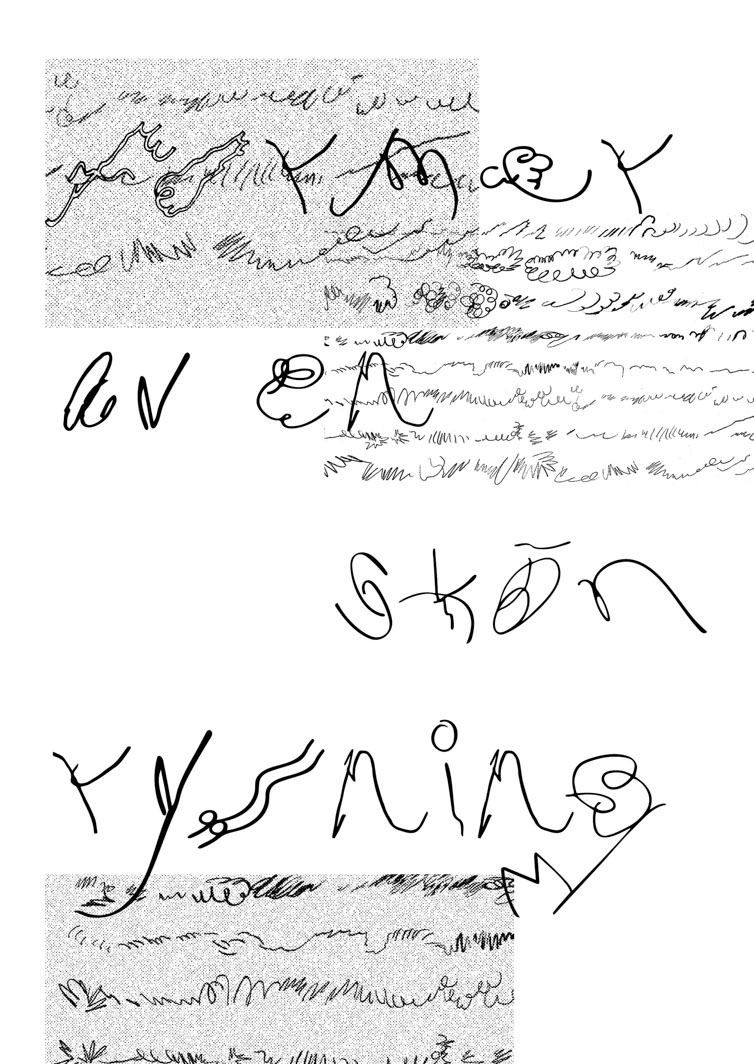 former
av en
skön
rysning